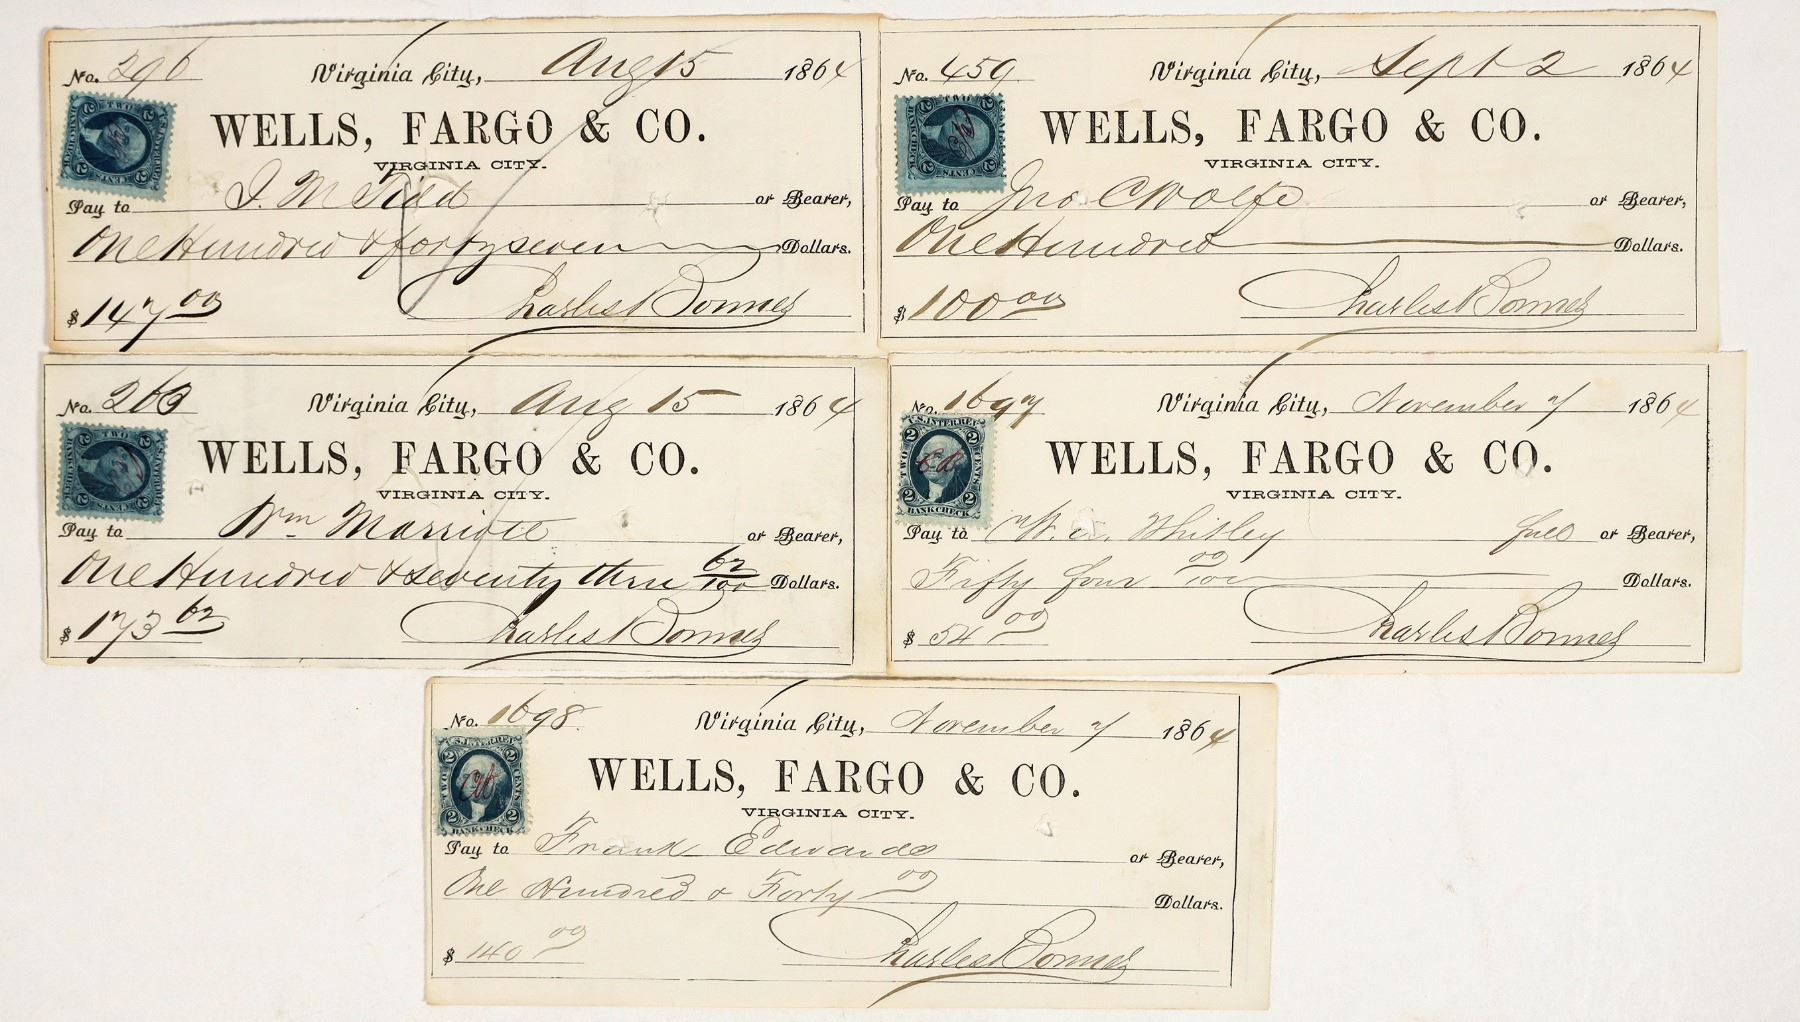 No. 296 Virginia City, Aug 15 1864
WELLS, FARGO & CO.
VIRGINIA CITY.
Pay to J. M. Tidd or Bearer,
One Hundred & forty seven Dollars.
$ 147 00 Charles Bonner
TWO
BANK CHECK
2 CENTS 2
No. 459 Virginia City, Sept 2 1864
WELLS, FARGO & CO.
VIRGINIA CITY.
Pay to Jno. C Wolfe or Bearer,
One Hundred Dollars.
$ 100 00 Charles Bonner
TWO
BANK CHECK
2 CENTS 2
No. 263 Virginia City, Aug 15 1864
WELLS, FARGO & CO.
VIRGINIA CITY.
Pay to Wm Marriott or Bearer,
One Hundred & seventy three 62/100 Dollars.
$ 173 62 Charles Bonner
TWO
BANK CHECK
2 CENTS 2
No. 1697 Virginia City, November 7 1864
WELLS, FARGO & CO.
VIRGINIA CITY.
Pay to W. a. Whitley full or Bearer,
Fifty four 00/100 Dollars.
$ 54 00 Charles Bonner
U.S. INTER REV
2 2
TWO CENTS
2 2
BANK CHECK
No. 1698 Virginia City, November 7 1864
WELLS, FARGO & CO.
VIRGINIA CITY.
Pay to Frank Edwards or Bearer,
One Hundred & Forty 00 Dollars.
$ 140 00 Charles Bonner
U.S. INTER REV
2 2
TWO CENTS
2 2
BANK CHECK